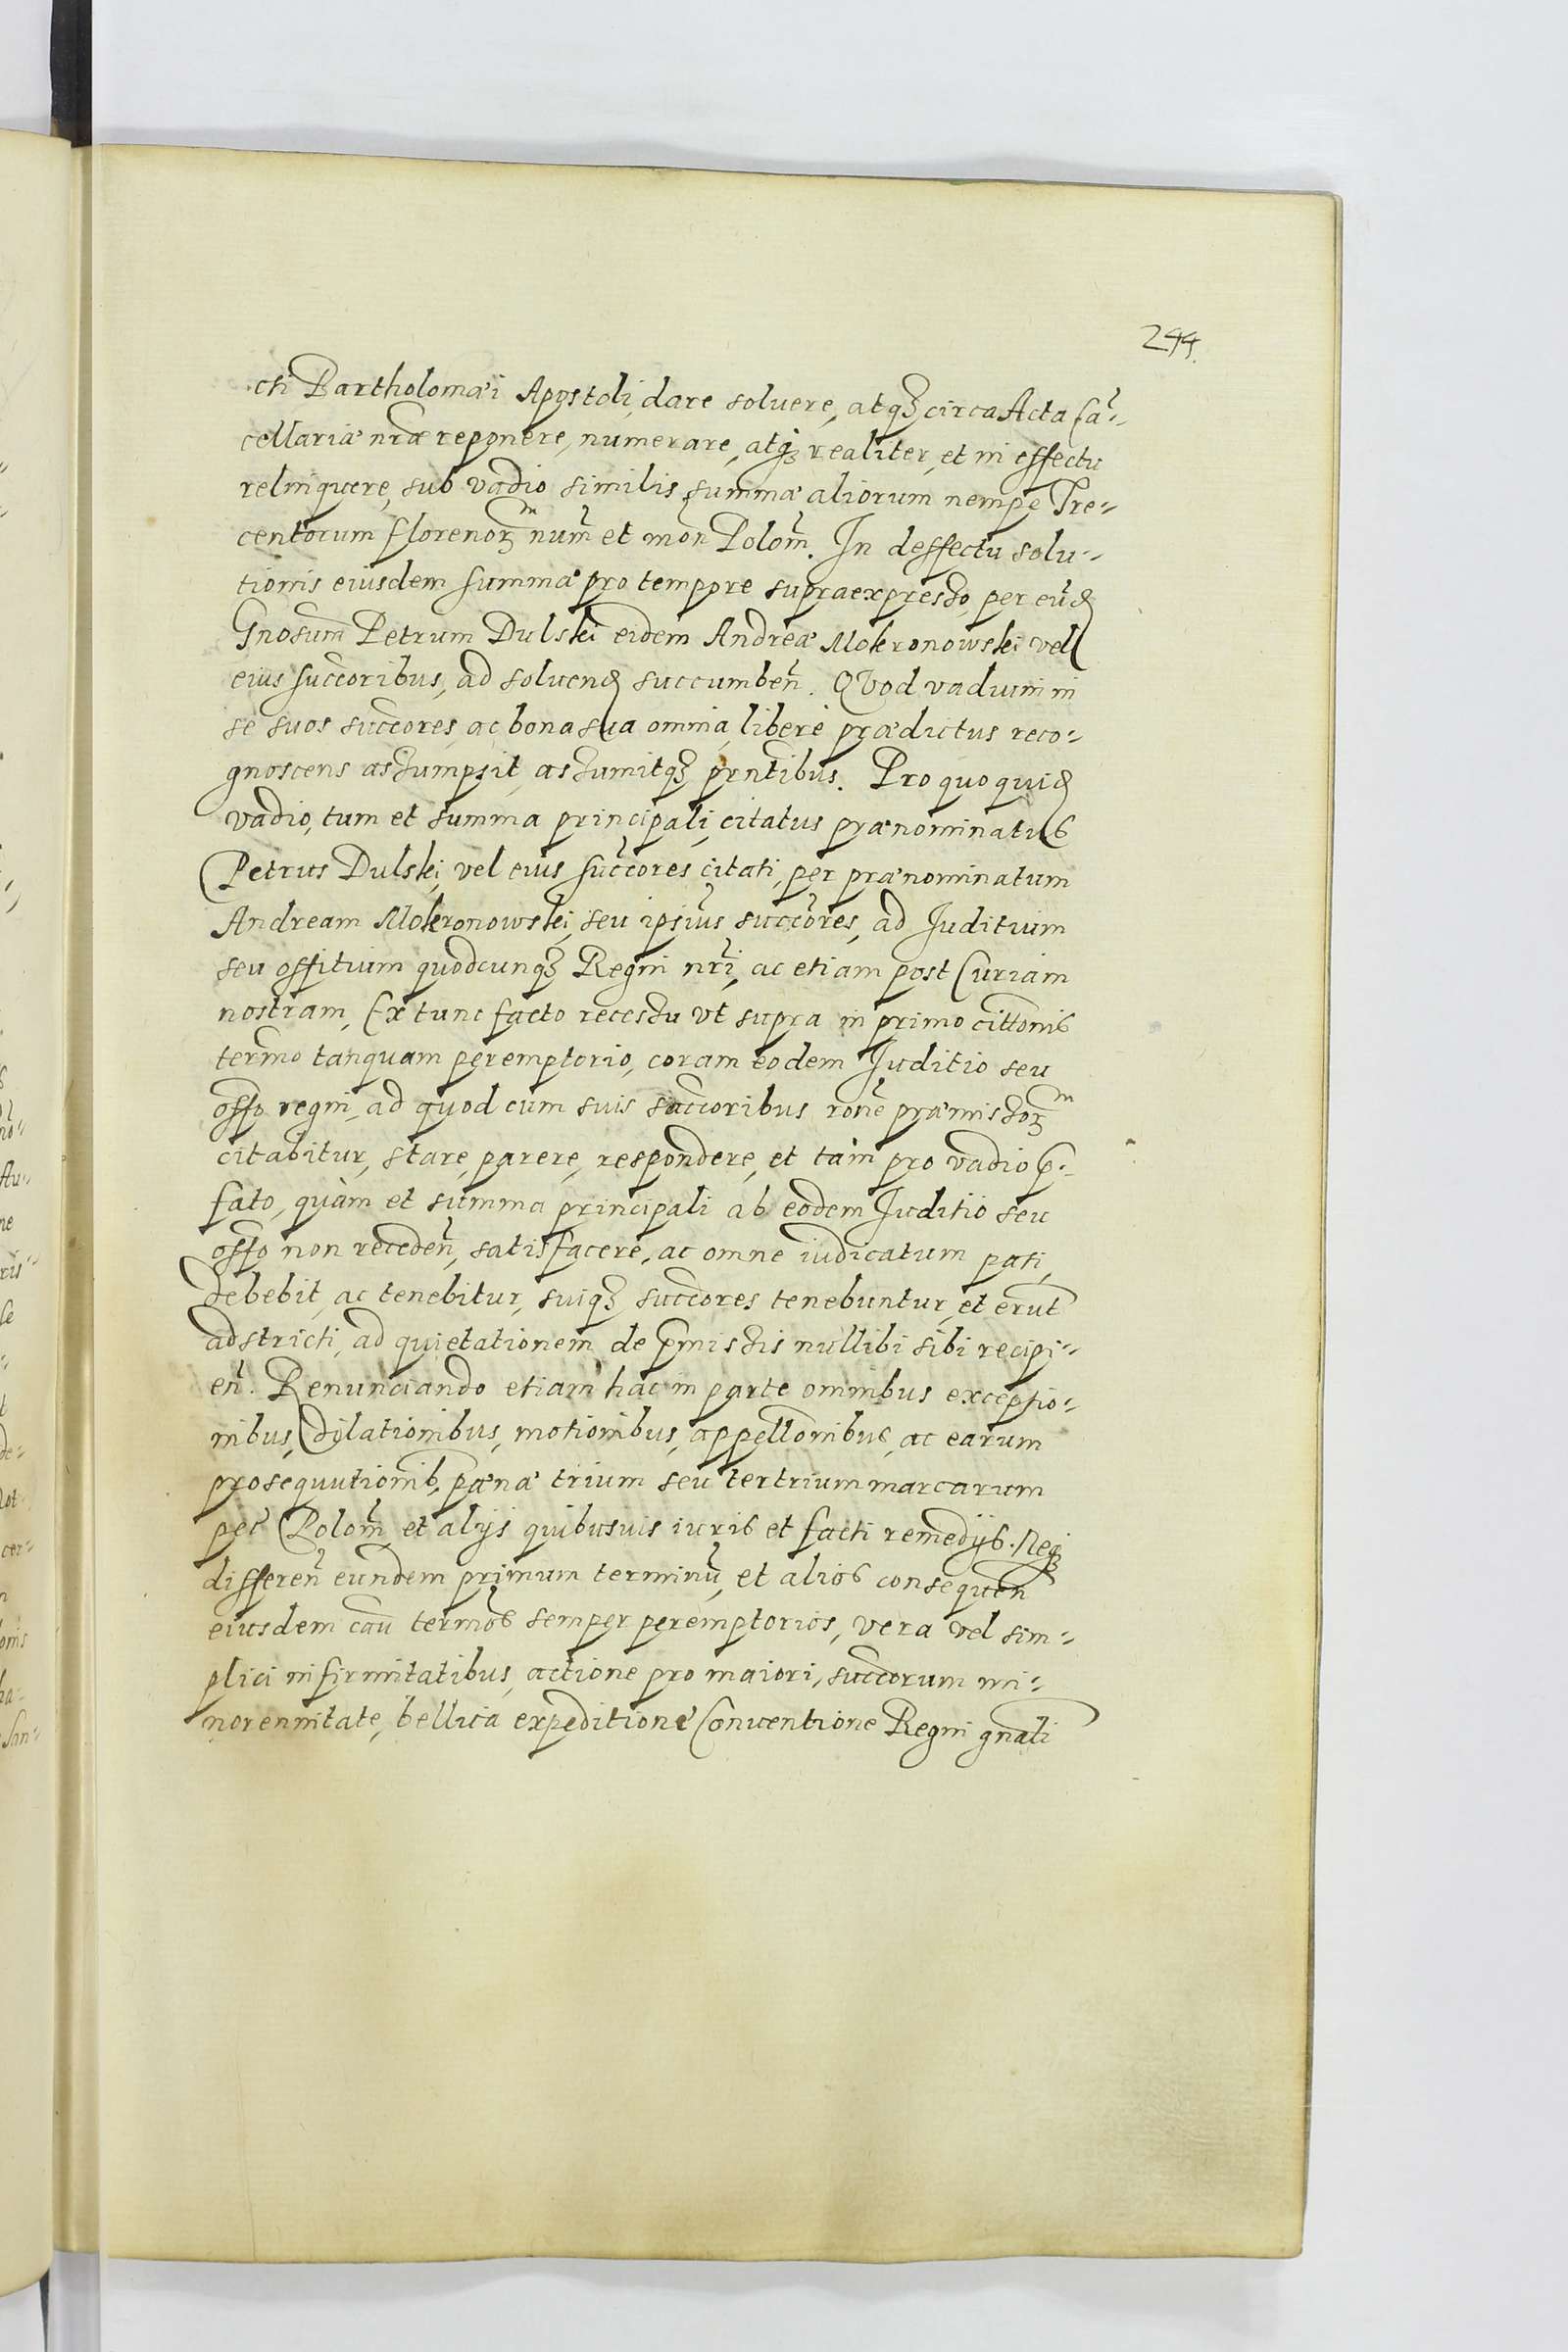 244.
cti Bartholomæi Apostoli, dare soluere, atqȝ circa Acta Cã-
cellariæ nrãe reponere, numerare, atqȝ realiter, et in effectu
relinquere, sub vadio similis summæ aliorum nempe Tre-
centorum florenorȝ^m num̃ et moñ Polom̃. In deffectu solu-
tionis eiusdem summæ pro tempore supraexpresso, per eũd
Gnosum Petrum Dulski eidem Andreæ Mokronowski vel
eius succoribus, ad soluend succumbeñ. Quod vadium in
se suos succores, ac bona sua omnia, liberè prædictus reco-
gnoscens assumpsit, assumitqȝ prntibus. Pro quo quid
vadio, tum et summa principali, citatus prænominatus
Petrus Dulski, vel eius succores citati, per prænominatum
Andream Mokronowski, seu ipsius succores, ad Iuditium
seu offitium quodcunqȝ Regni nrĩ, ac etiam post Curiam
nostram, Ex tunc facto recessu vt supra in primo cittonis
termo tanquam peremptorio, coram eodem Iuditio seu
offo regni, ad quod cum suis succoribus rone præmissorȝ^m
citabitur, stare, parere, respondere, et tàm pro vadio p̃-
fato, quàm et summa principali ab eodem Iuditio seu
offo non recedeñ, satisfacere, ac omne iudicatum pati,
debebit, ac tenebitur, suiqȝ succores tenebuntur, et erũt
adstricti, ad quietationem de p̃missis nullibi sibi recipi-
eñ. Renunciando etiam hac in parte omnibus exceptio-
nibus, dylationibus, motionibus, appellonibus, ac earum
prosequutionib, pænæ trium seu ter trium marcarum
pec̃ Polom̃, et alijs quibusuis iuris et facti remedijs. Neqȝ
differeñ eundem primum terminũ, et alios consequeñ
eiusdem caũ termos semper peremptorios, vera vel sim-
plici infirmitatibus, actione pro maiori, succorum mi-
norennitate, bellica expeditione Conuentione Regni gnali